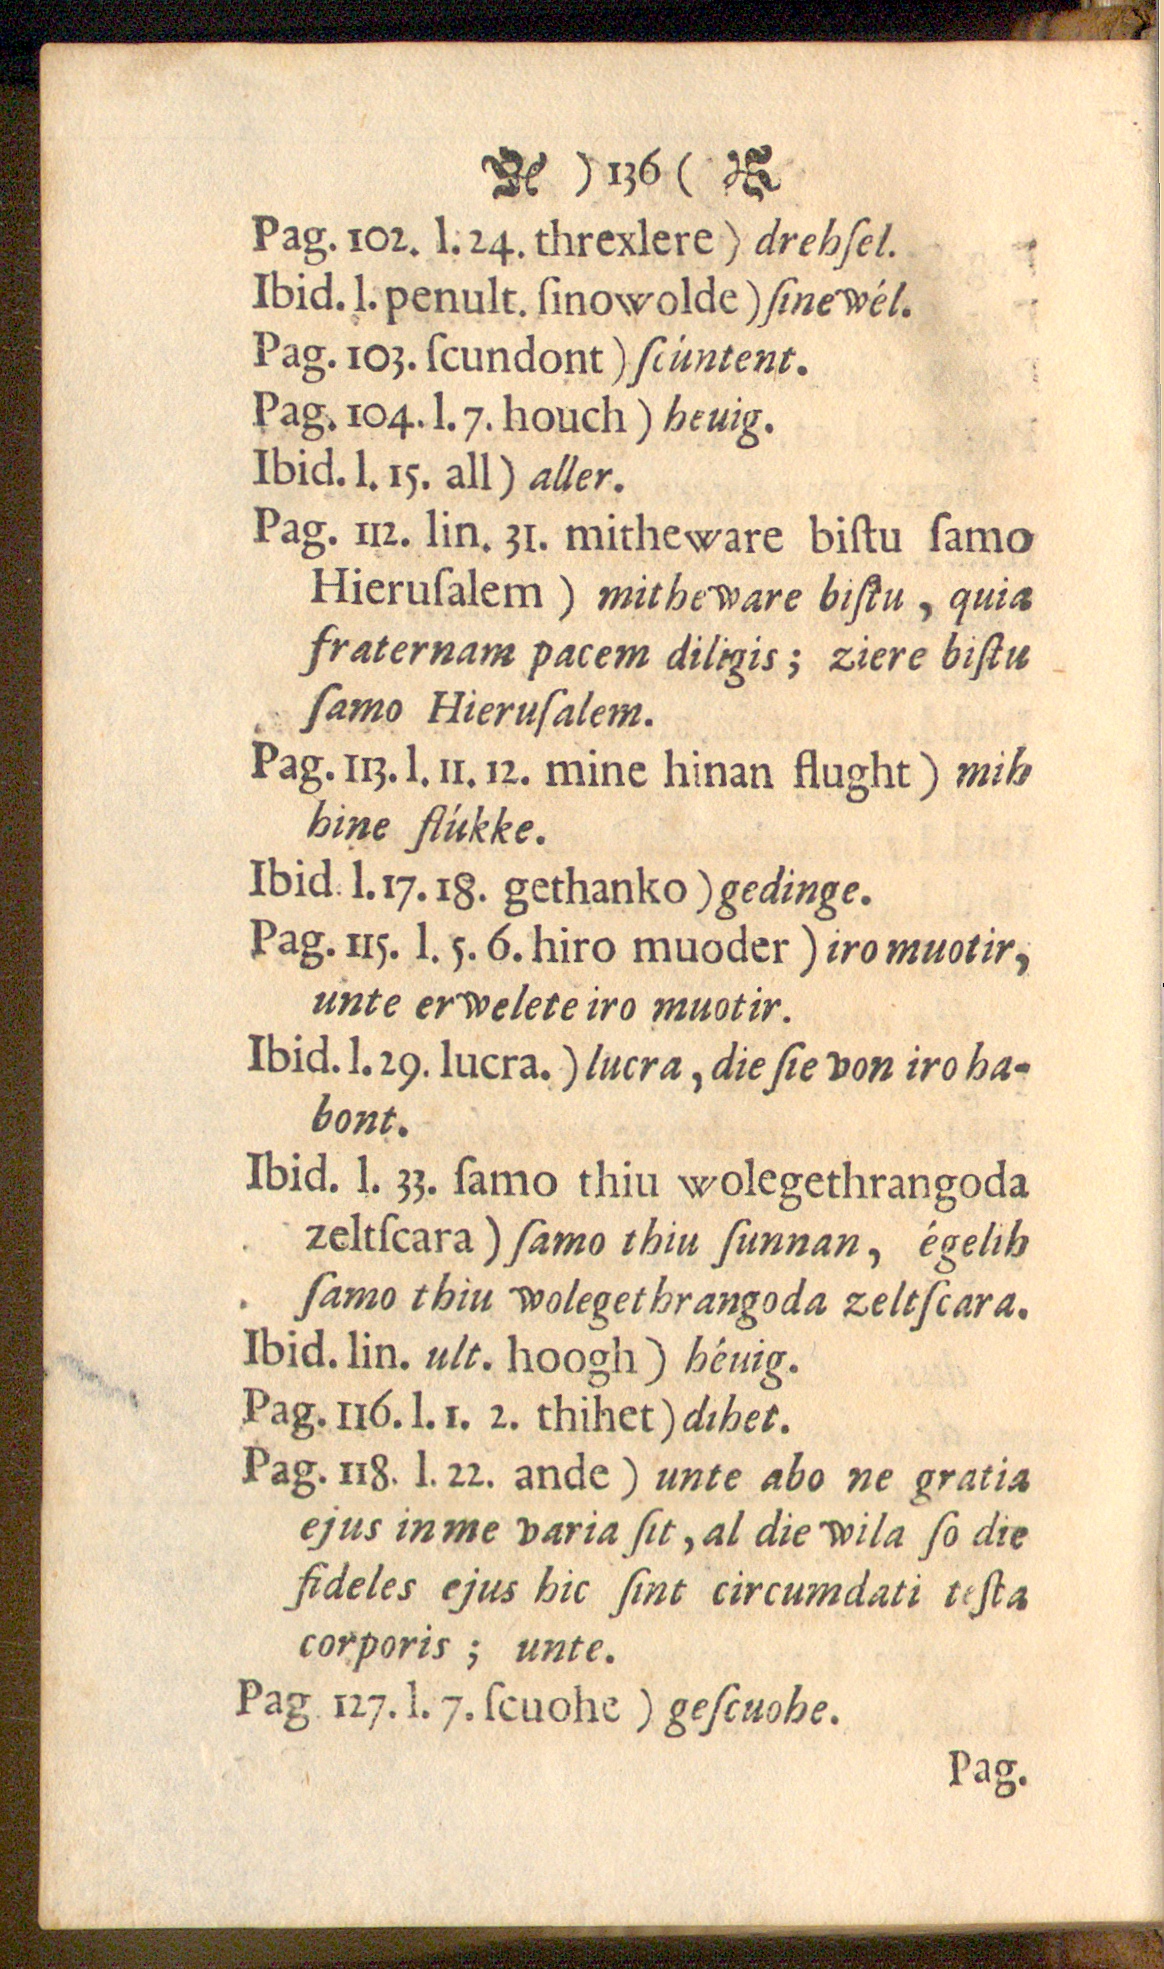 ) 136 (
Pag. 102. l. 24. threxlere ) drehſel.
Ibid. l. penult. ſinowolde ) ſinewél.
Pag. 103. ſcundont ) ſcúntent.
Pag. 104. l. 7. houch ) heuig.
Ibid. l. 15. all ) aller.
Pag. 112. lin. 31. mitheware biſtu ſamo
Hieruſalem ) mitheware biſtu, quia
fraternam pacem diligis; ziere biſtu
ſamo Hieruſalem.
Pag. 113. l. 11. 12. mine hinan flught ) mih
hine flúkke.
Ibid. l. 17. 18. gethanko ) gedinge.
Pag. 115. l. 5. 6. hiro muoder ) iro muotir,
unte erwelete iro muotir.
Ibid. l. 29. lucra. ) lucra, die ſie von iro ha-
bont.
Ibid. l. 33. ſamo thiu wolegethrangoda
zeltſcara ) ſamo thiu ſunnan, égelih
ſamo thiu wolegethrangoda zeltſcara.
Ibid. lin. ult. hoogh ) héuig.
Pag. 116. l. 1. 2. thihet ) dihet.
Pag. 118. l. 22. ande ) unte abo ne gratia
ejus in me varia ſit, al die wila ſo die
fideles ejus hic ſint circumdati teſta
corporis; unte.
Pag. 127. l. 7. ſcuohe ) geſcuohe.
Pag.